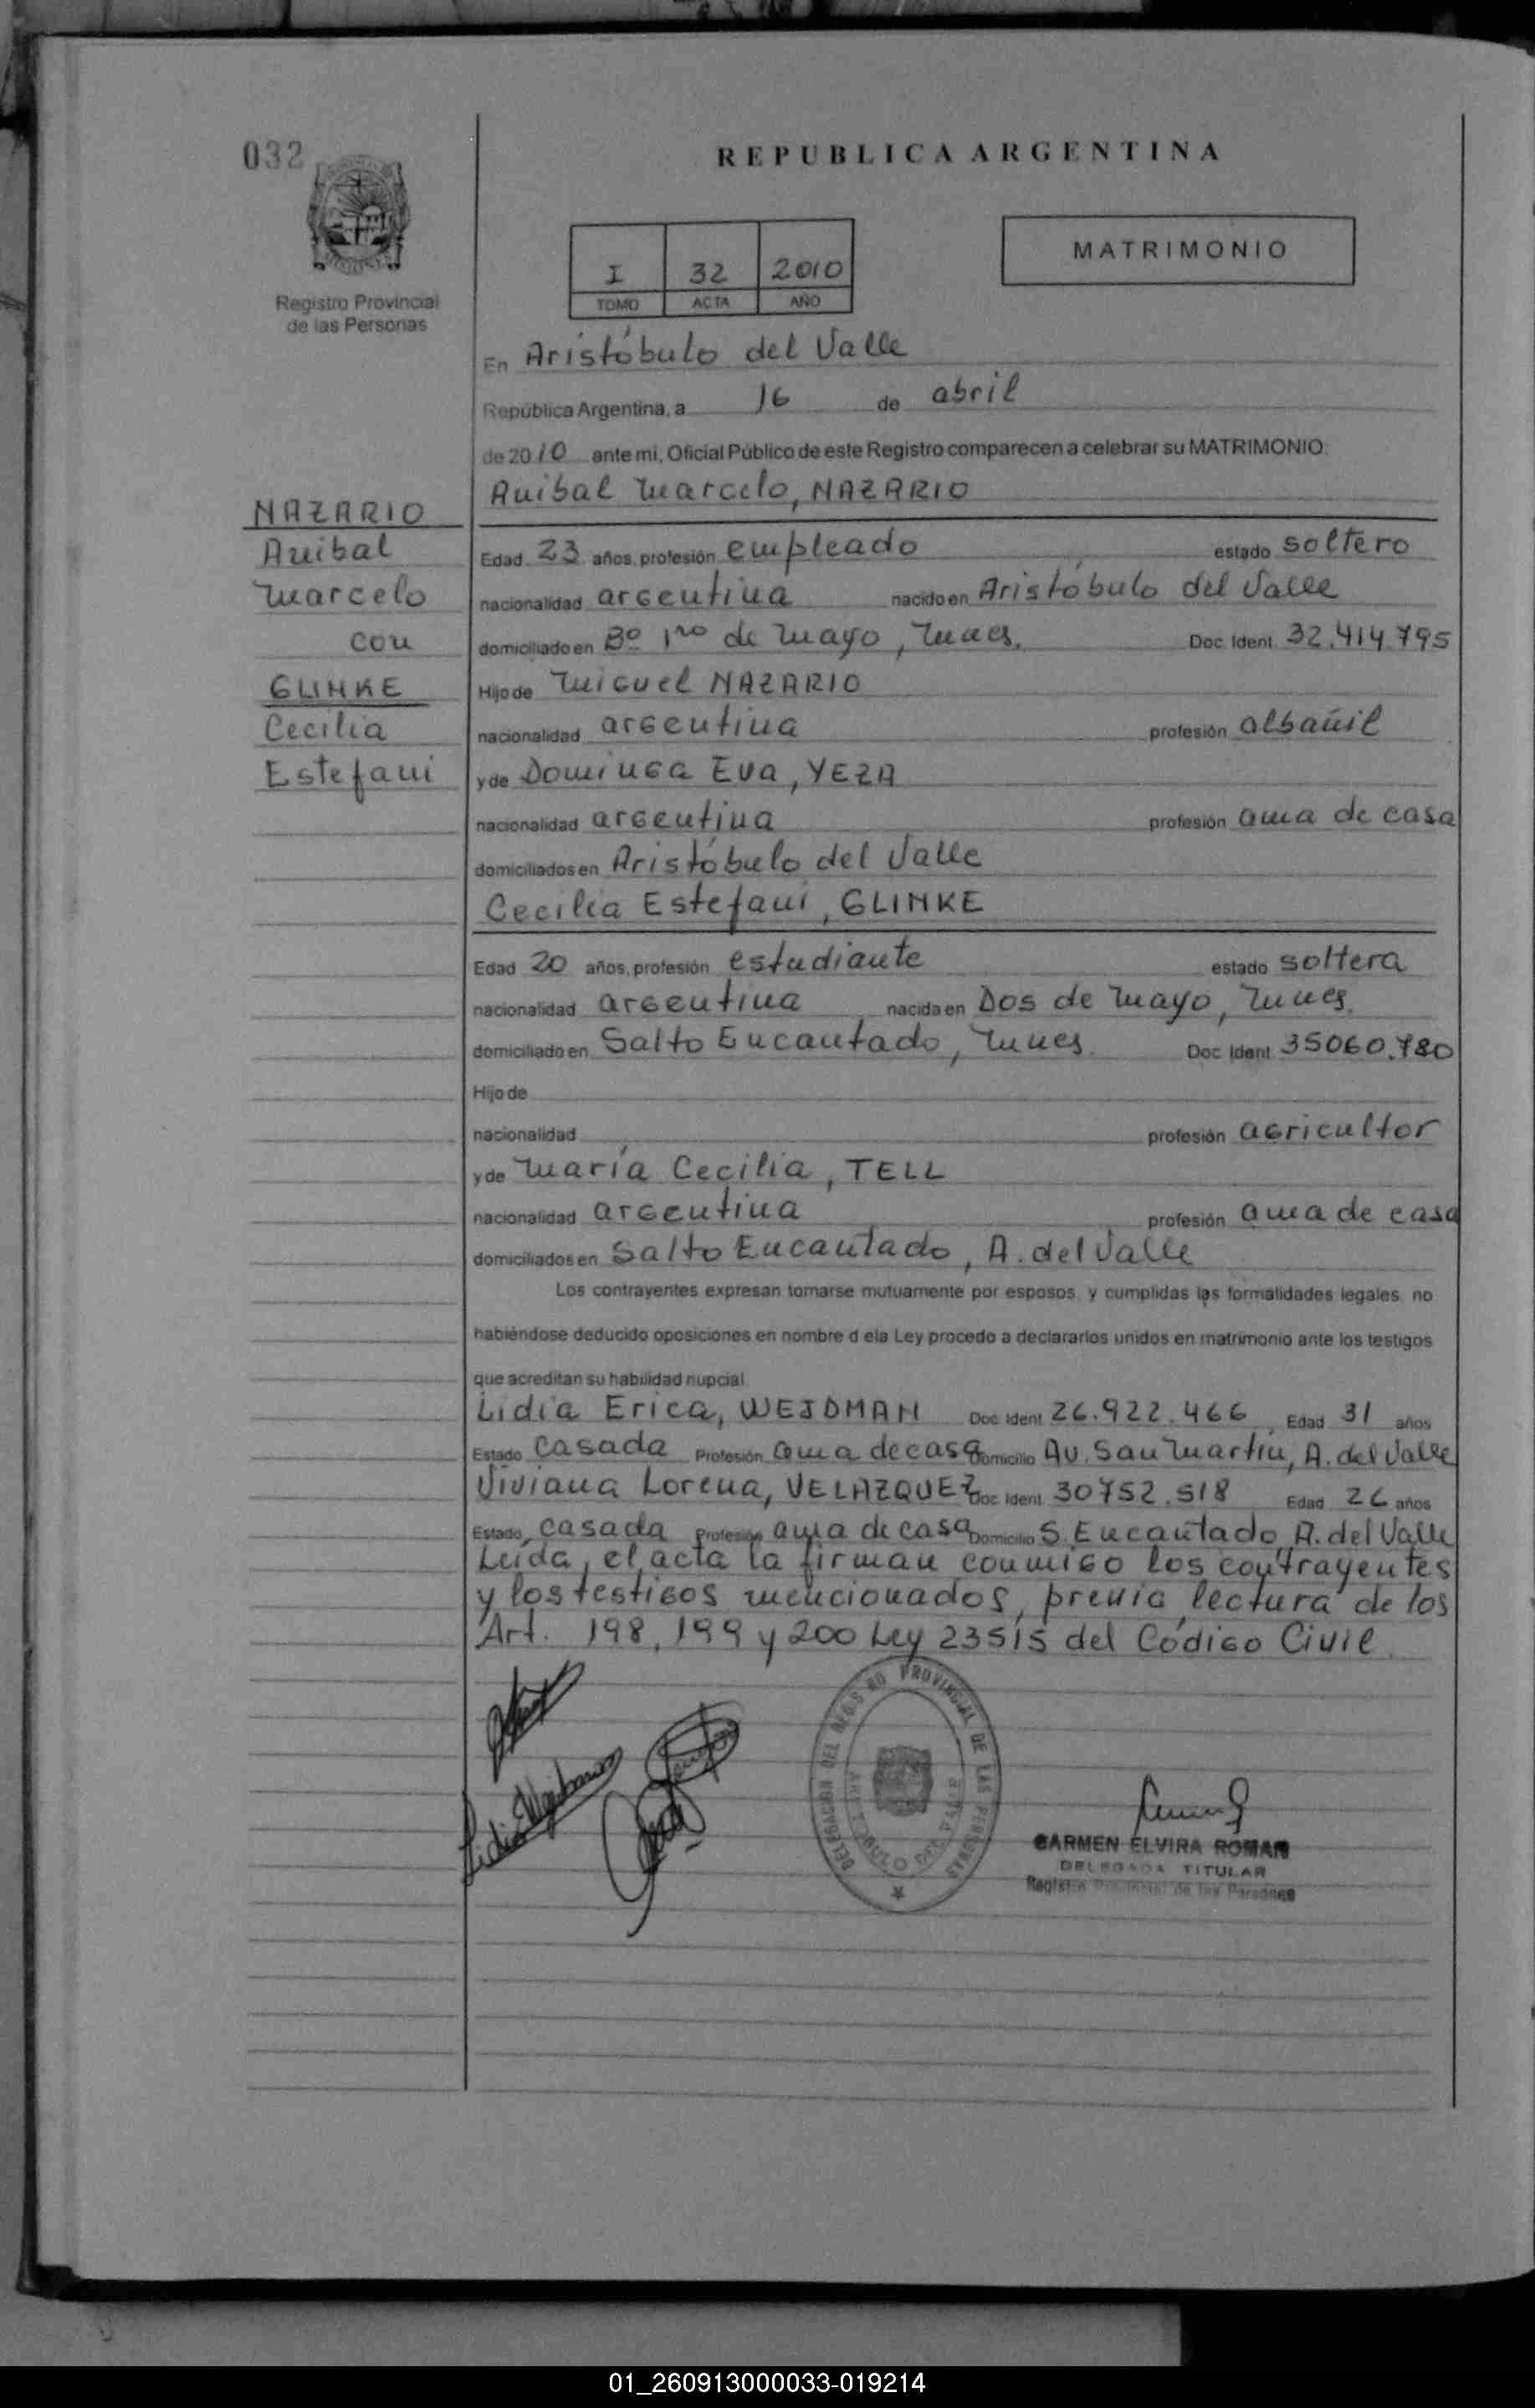 032
REPUBLICA ARGENTINA
I 32 2010
TOMO ACTA AÑO
MATRIMONIO
Registro Provincial
de las Personas
En Aristóbulo del Valle
República Argentina, a 16 de abril
de 2010 ante mi, Oficial Público de este Registro comparecen a celebrar su MATRIMONIO:
Anibal Marcelo, NAZARIO
NAZARIO
Anibal
Marcelo
con
GLINKE
Cecilia
Estefani
Edad 23 años, profesión empleado estado soltero
nacionalidad argentina nacido en Aristóbulo del Valle
domiciliado en Bº 1ro de Mayo, Mnes. Doc. Ident. 32.414.795
Hijo de Miguel NAZARIO
nacionalidad argentina profesión albañil
y de Dominga Eva, YEZA
nacionalidad argentina profesión ama de casa
domiciliados en Aristóbulo del Valle
Cecilia Estefani, GLINKE
Edad 20 años, profesión estudiante estado soltera
nacionalidad argentina nacida en Dos de Mayo, Mnes.
domiciliado en Salto Encantado, Mnes. Doc. Ident. 35060.780
Hijo de
nacionalidad profesión agricultor
y de María Cecilia, TELL
nacionalidad argentina profesión ama de casa
domiciliados en Salto Encantado, A. del Valle
Los contrayentes expresan tomarse mutuamente por esposos, y cumplidas las formalidades legales, no
habiéndose deducido oposiciones en nombre d ela Ley procedo a declararlos unidos en matrimonio ante los testigos
que acreditan su habilidad nupcial.
Lidia Erica, WEIDMAN Doc. Ident. 26.922.466 Edad 31 años
Estado casada Profesión ama de casa Domicilio Av. San Martin, A. del Valle
Viviana Lorena, VELAZQUEZ Doc. Ident. 30752.518 Edad 26 años
Estado casada Profesión ama de casa Domicilio S. Encantado, A. del Valle
Leída, el acta la firman conmigo los contrayentes
y los testigos mencionados, previa lectura de los
Art. 198, 199 y 200 Ley 23515 del Código Civil.
DELEGACION DEL REGISTRO PROVINCIAL DE LAS PERSONAS
ARISTOBULO DEL VALLE
CARMEN ELVIRA ROMAN
DELEGADA TITULAR
Registro Provincial de las Personas
01_260913000033-019214